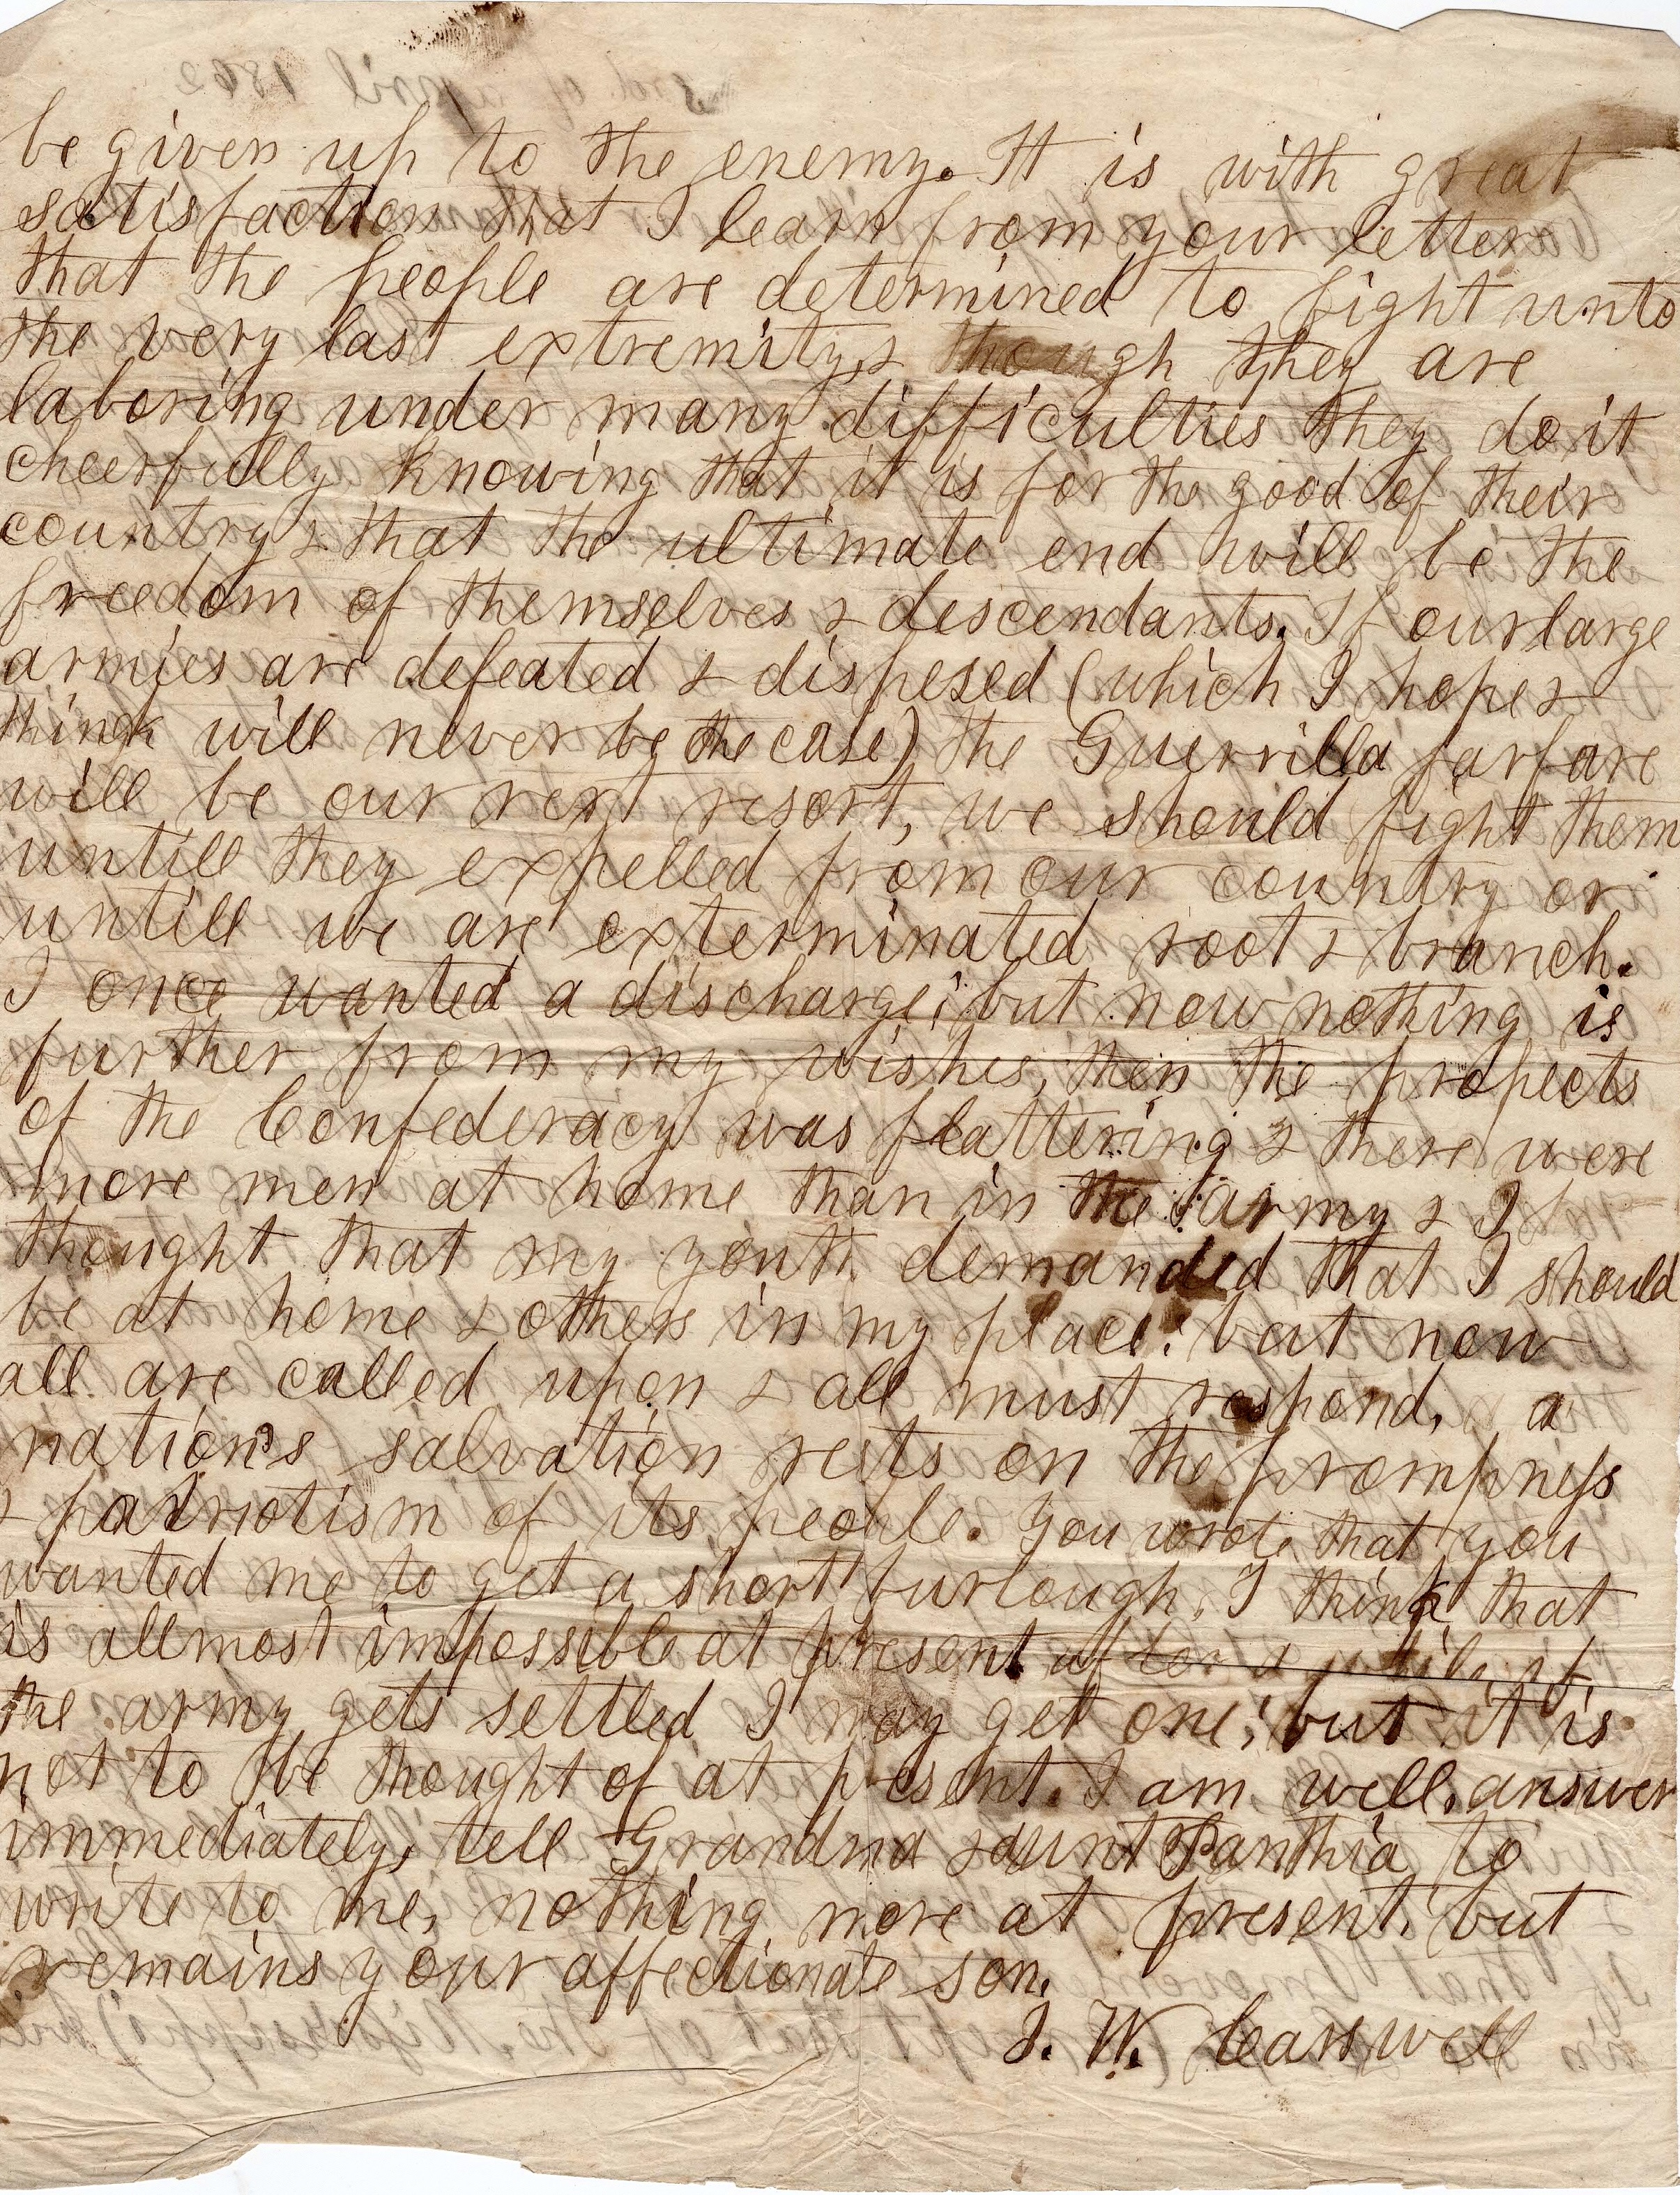 be given up to the enemy. It is with great
satisfaction that I learn from your letter
that the people are determined to fight unto
the very last extremity, & though they are
laboring under many difficulties they do it
cheerfully knowing that it is for the good of their
country & that the ultimate end will be the
freedom of themselves & descendants. If our large
armies are defeated & dispesed (which I hope &
think will never be the case) the Guerrilla farfare
will be our next resort, we should fight them
untill they expelled from our country or
untill we are exterminated root & branch.
I once wanted a discharge; but now nothing is
further from my wishes, then the propects
of the Confederacy was flattering & there were
more men at home than in the army & I
thought that my youth demanded that I should
be at home & others in my place: but now
all are called upon & all must respond, a
nation's salvation rests on the prompness
& patriotism of its people. You wrote that you
wanted me to get a short furlough, I think that
is allmost impossible at present after a while if
the army gets settled I may get one; but it is
not to be thought of at present. I am well. answer
immediately, tell Grandma & aunt Panthia to
write to me, nothing more at present. but
remains your affectionate son.
J. W. Carswell